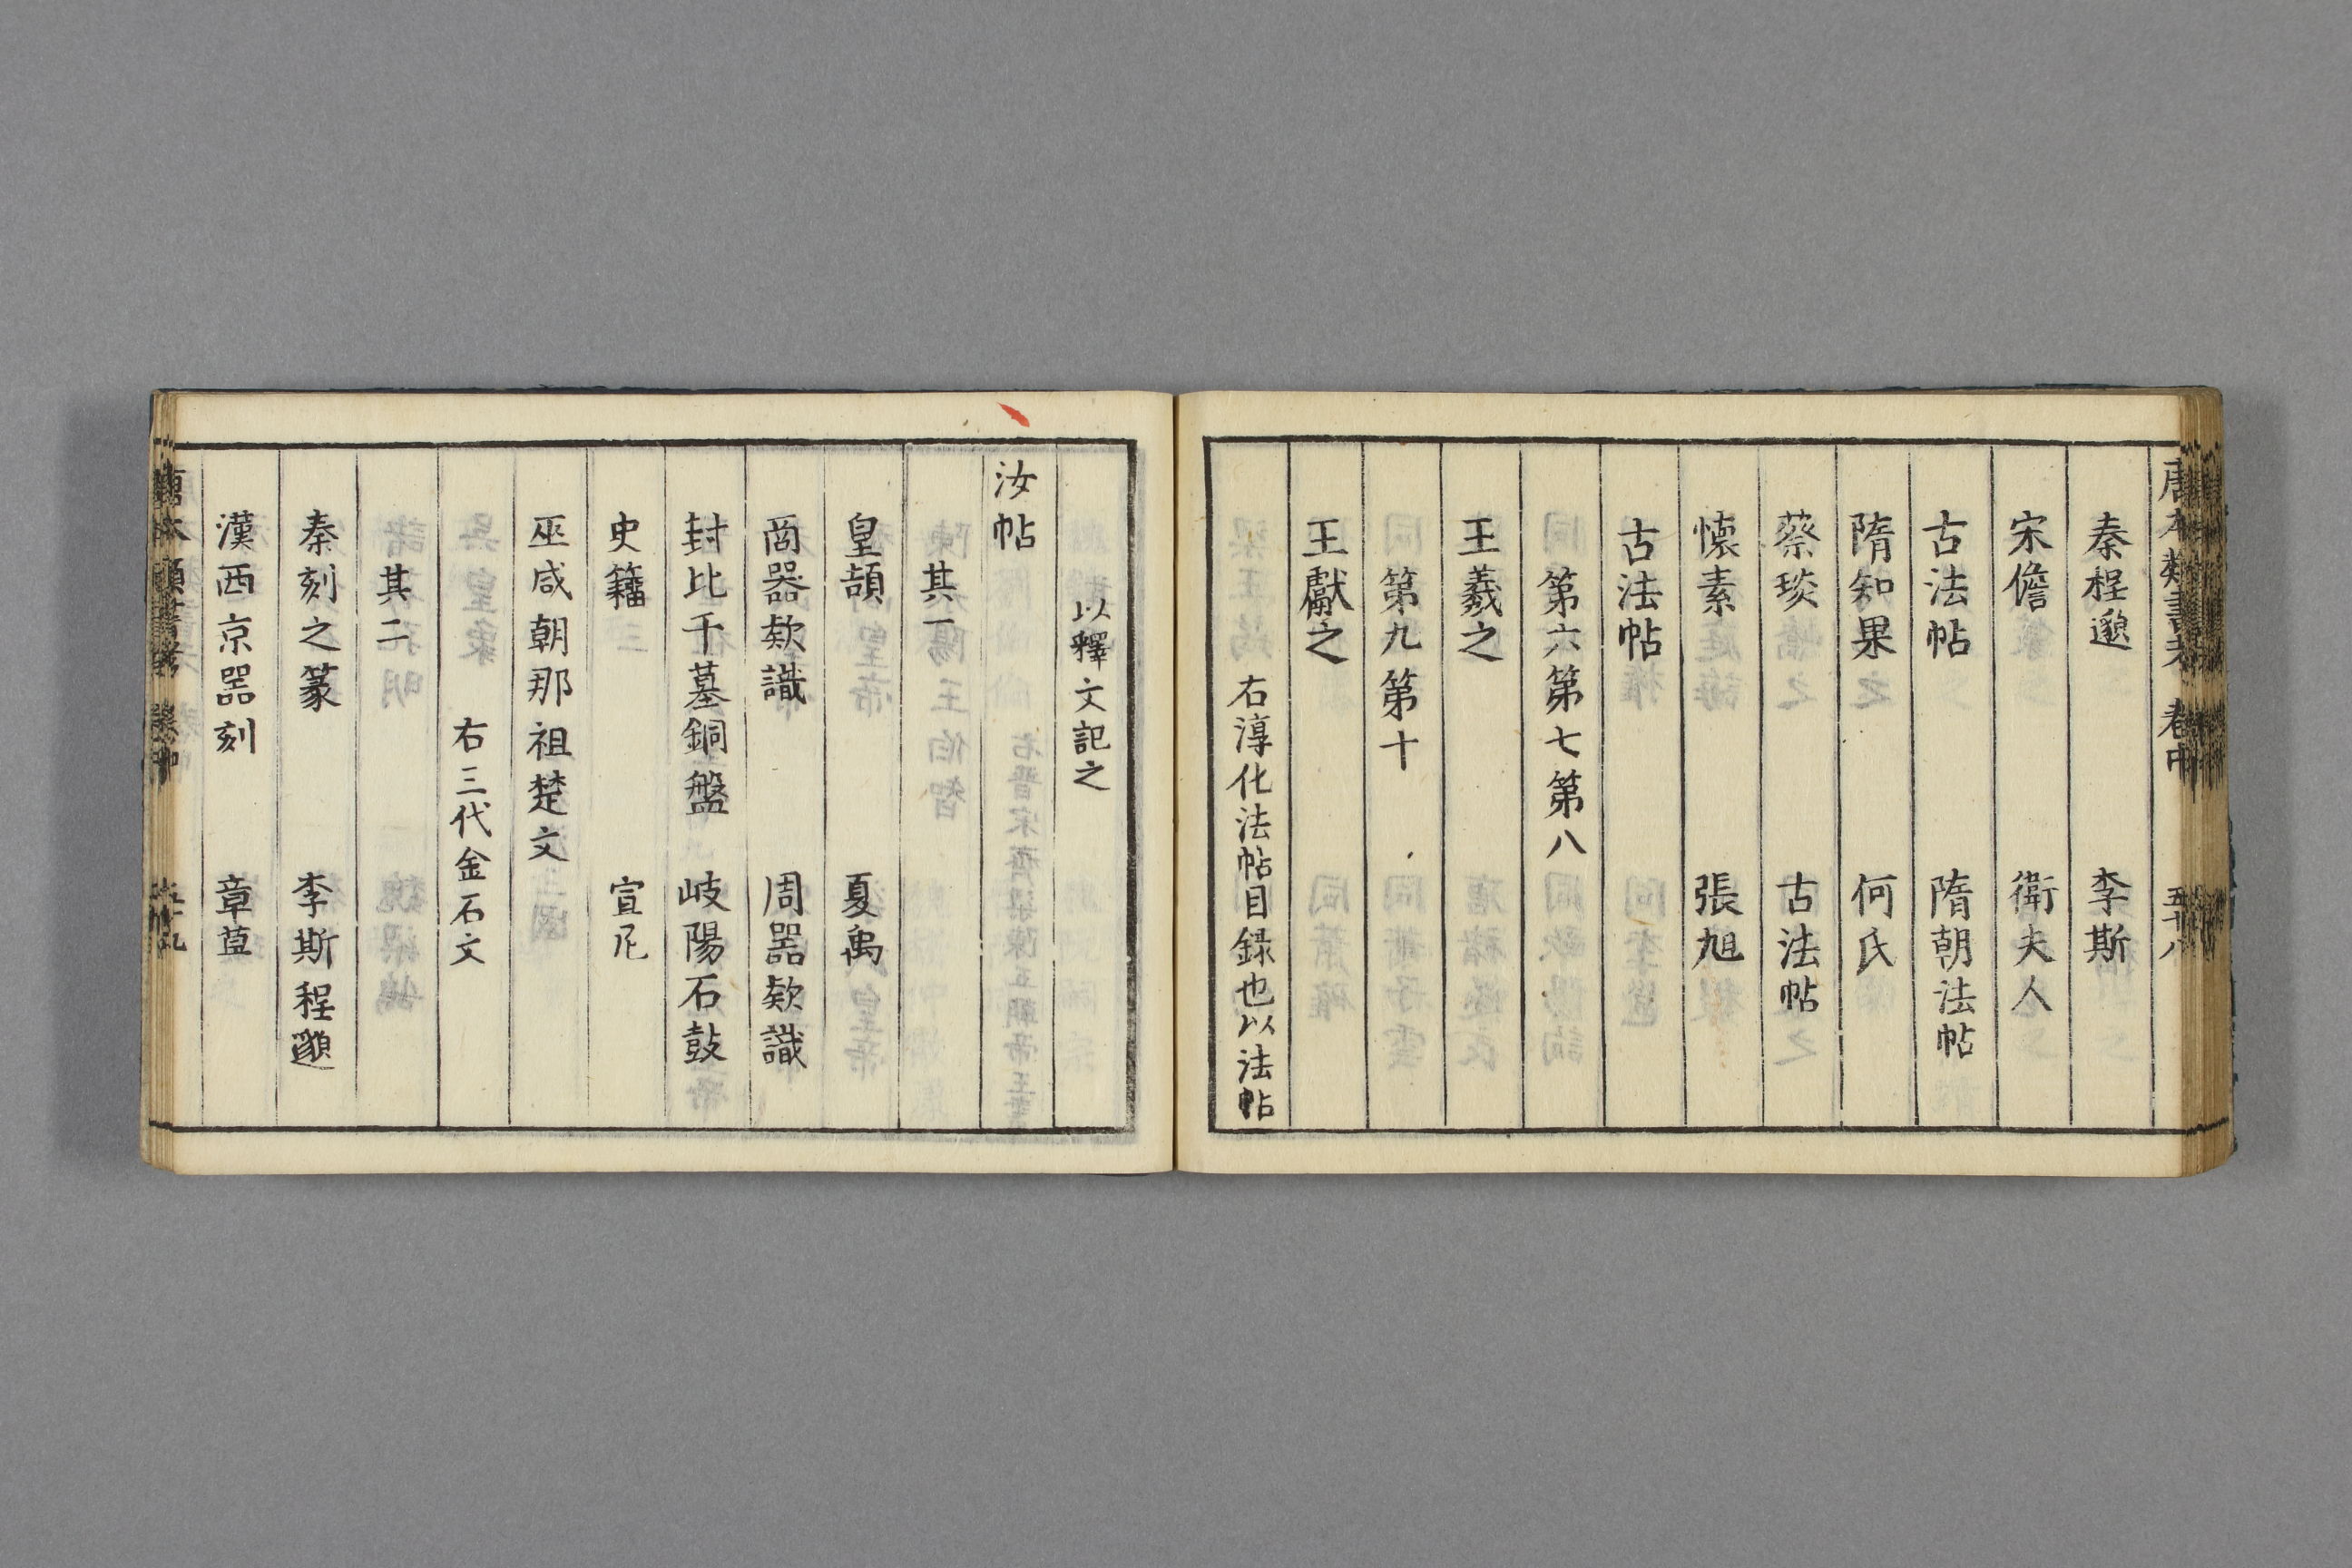 唐本類書考 卷中 五十八
秦程邈 李斯
宋儋 衛夫人
古法帖 隋朝法帖
隋知果 何氏
蔡琰 古法帖
懐素 張旭
古法帖
第六第七第八
王羲之
第九第十
王獻之
右淳化法帖目録也以法帖
以釋文記之
汝帖
其一
皇頡 夏禹
商器欵識 周器欵識
封比干墓銅盤 岐陽石鼓
史籀 宣尼
巫咸朝那祖楚文
右三代金石文
其二
秦刻之篆 李斯程邈
漢西京器刻 章